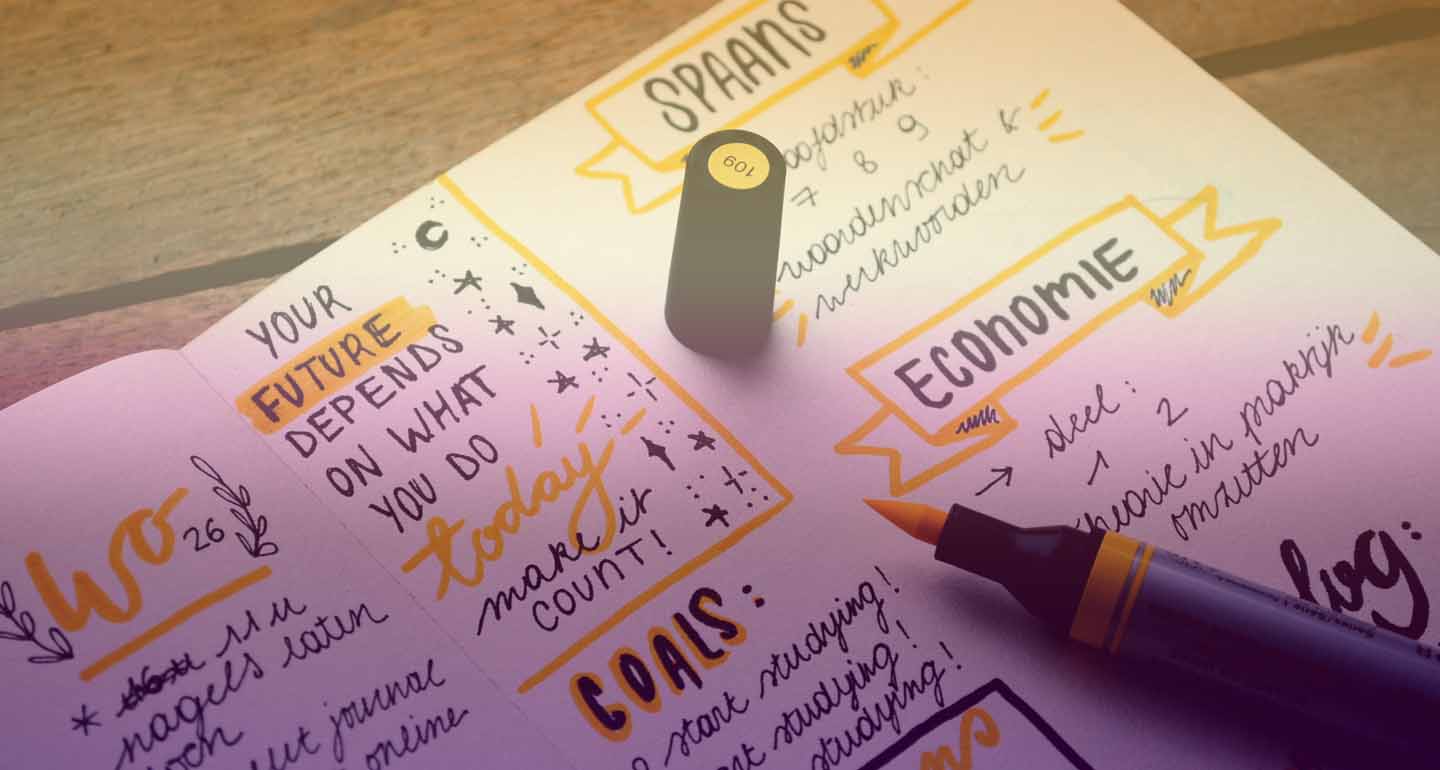 SPAANS
7 8 9
woordenschat &
werkwoorden
109
ECONOMIE
→ deel:
1 2
theorie in praktijk
omzetten
log:
YOUR
FUTURE
DEPENDS
ON WHAT
YOU DO
today
make it
COUNT!
GOALS:
start studying!
start studying!
studying!
WO
26
* 11 u
nagels laten
journal
online